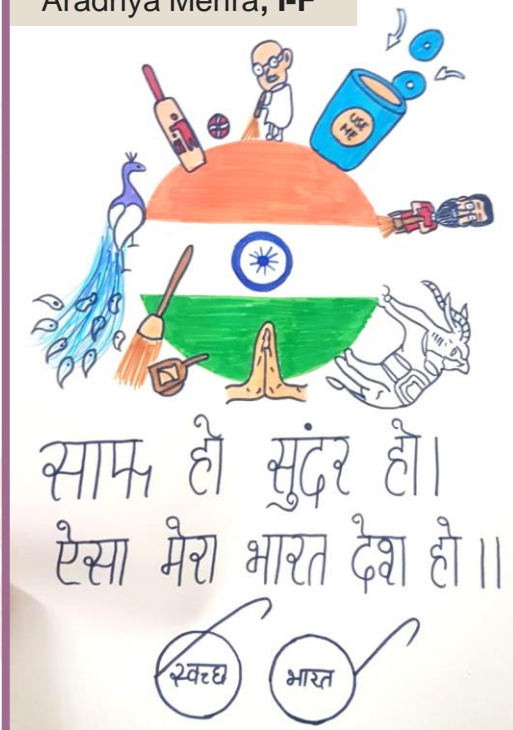 Aradhya Mehra, I-F
USE
ME
साफ हो सुंदर हो।
ऐसा मेरा भारत देश हो॥
स्वच्छ भारत